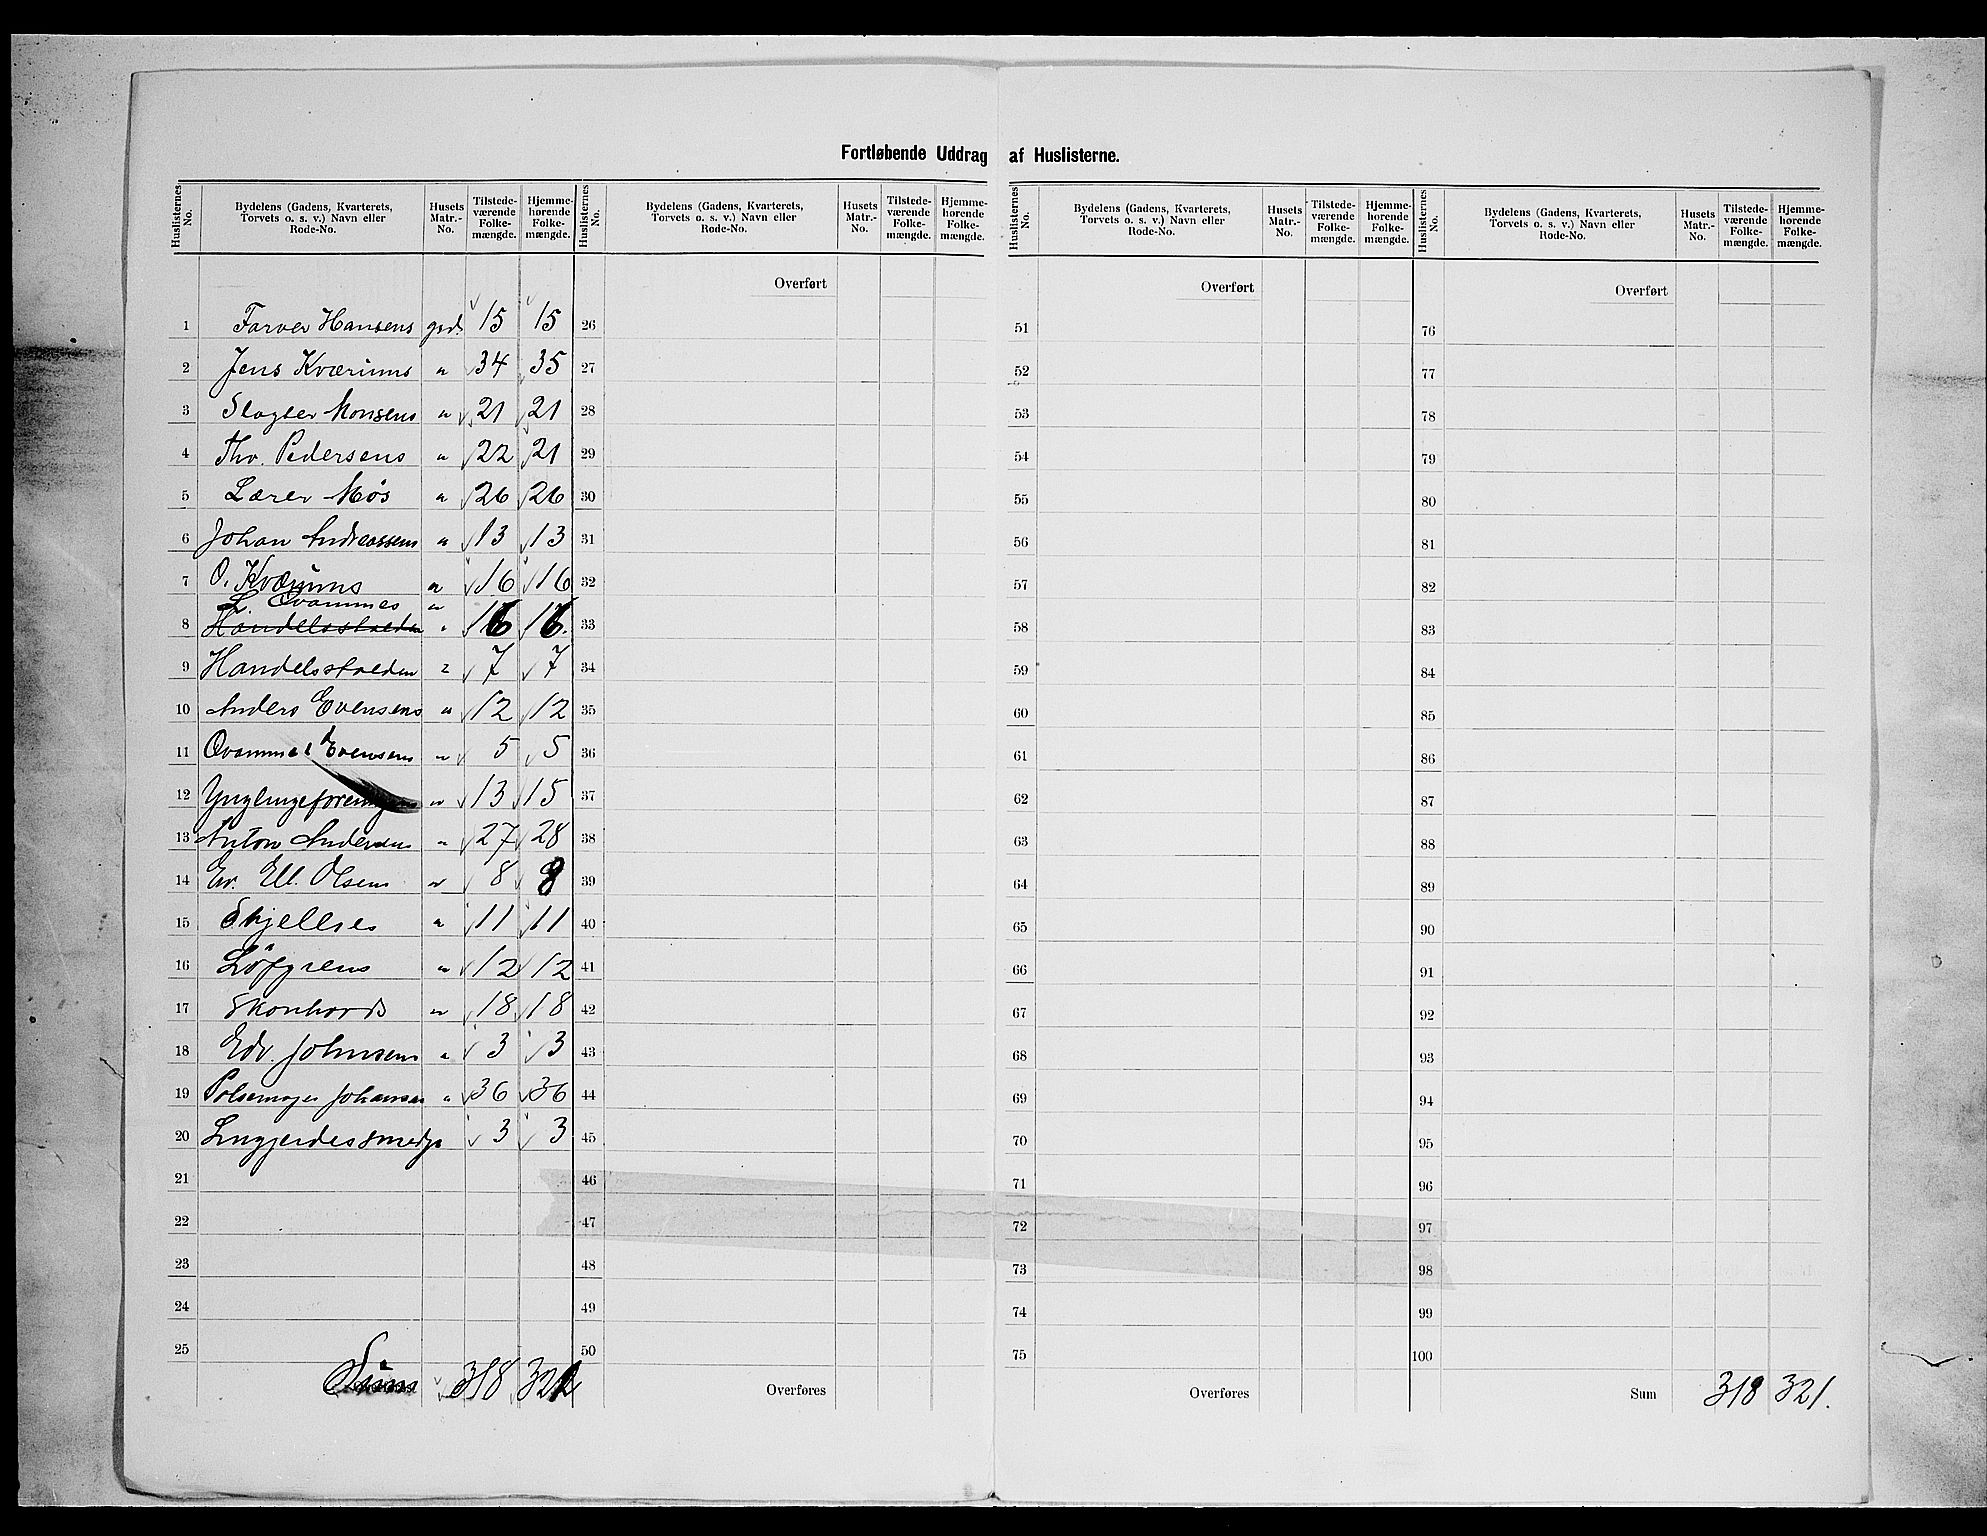 Fortløbende Uddrag af Huslisterne.
Huslisternes No. Bydelens (Gadens, Kvarterets, Torvets o. s. v.) Navn eller Rode-No. Husets Matr.-No. Tilstede-værende Folke-mængde. Hjemme-hørende Folke-mængde.
1 Farver Hansens grd. 15 15
2 Jens Kværums " 34 35
3 Slagter Monsens " 21 21
4 Thv. Pedersens " 22 21
5 Lærer Møs " 26 26
6 Johan Andreassens " 13 13
7 O. Kværums " 16 16
L. Qvammes "
8 Handelsstalden " 16 16.
9 Handelsstalden " 7 7
10 Anders Evensens " 12 12
11 Qvammes Evensens " 5 5
12 Ynglingeforeningens " 13 15
13 Anton Andersens " 27 28
14 Ev. Ell. Olsens " 8 8
15 Skjelles " 11 11
16 Löfgrens " 12 12
17 Skonhords " 18 18
18 Edv. Johnsens " 3 3
19 Pølsemager Johansens " 36 36
20 Lnggjerdes smedje 3 3
21
22
23
24
25
Sum 318 321
Huslisternes No. Bydelens (Gadens, Kvarterets, Torvets o. s. v.) Navn eller Rode-No. Husets Matr.-No. Tilstede-værende Folke-mængde. Hjemme-hørende Folke-mængde.
Overført
26
27
28
29
30
31
32
33
34
35
36
37
38
39
40
41
42
43
44
45
46
47
48
49
50
Overføres
Huslisternes No. Bydelens (Gadens, Kvarterets, Torvets o. s. v.) Navn eller Rode-No. Husets Matr.-No. Tilstede-værende Folke-mængde. Hjemme-hørende Folke-mængde.
Overført
51
52
53
54
55
56
57
58
59
60
61
62
63
64
65
66
67
68
69
70
71
72
73
74
75
Overføres
Huslisternes No. Bydelens (Gadens, Kvarterets, Torvets o. s. v.) Navn eller Rode-No. Husets Matr.-No. Tilstede-værende Folke-mængde. Hjemme-hørende Folke-mængde.
Overført
76
77
78
79
80
81
82
83
84
85
86
87
88
89
90
91
92
93
94
95
96
97
98
99
100
Sum 318 321.